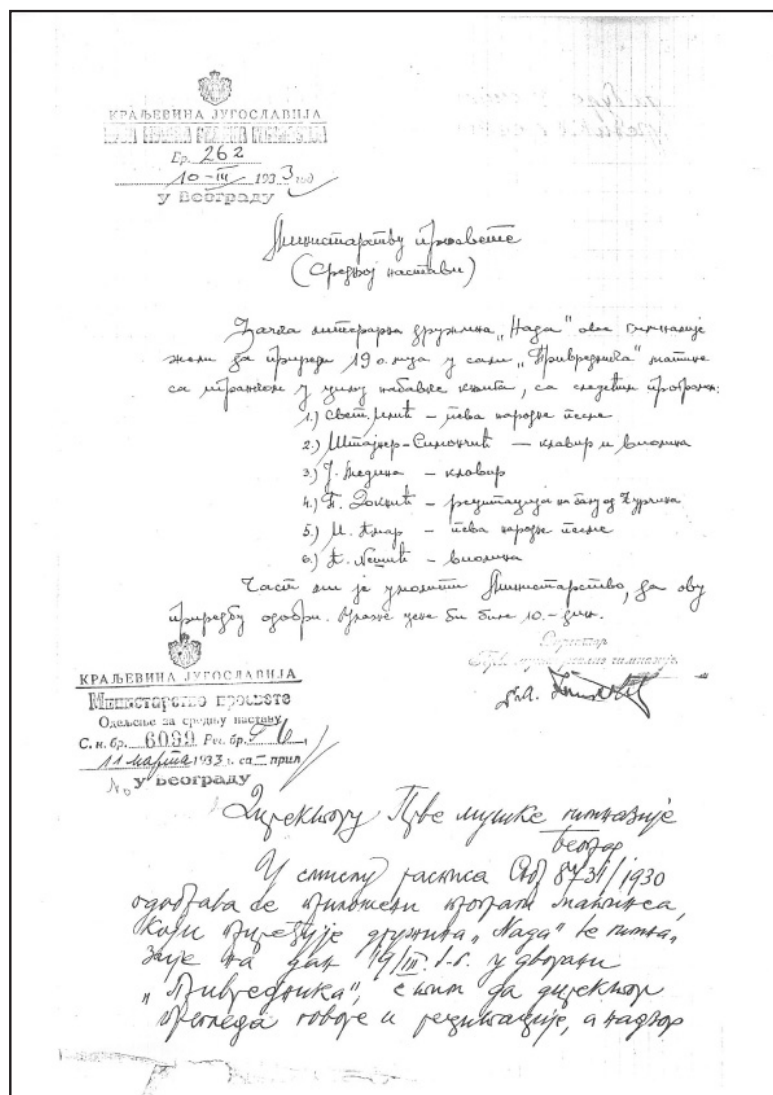 КРАЉЕВИНА ЈУГОСЛАВИЈА
Бр. 262
10-III 1933 год
у Београду
Министарству просвете
(Средњој настави)
Ђачка литерарна дружина „Нада" ове гимназије
жели да приреди 19 о. м-ца у сали „Привредника" матине
са игранком у циљу набавке књига, са следећим програмом:
1.) Свет. Илић – пева народне песме
2.) Штајнер-Симончић — клавир и виолина
3.) Ј. Медина – клавир
4.) – рецитација
5.) – пева народне песме
6.) Нешић – виолина
Част ми је умолити Министарство, да ову
приредбу одобри. Улазне цене би биле 10.- дин.
Директор
гимназије
КРАЉЕВИНА ЈУГОСЛАВИЈА
Министарство просвете
Одељење за средњу наставу
С. н. бр. 6099 Рег. бр.
11 марта 1933 г. са прил
у Београду
Директору Прве мушке гимназије
Београд
У смислу расписа 8731/1930
одобрава се приложени програм матинеа,
који приређује дружина „Нада" те гимна-
зије на дан 19/III. у дворани
„Привредника", с тим да директор
прегледа говоре и рецитације, а надзор